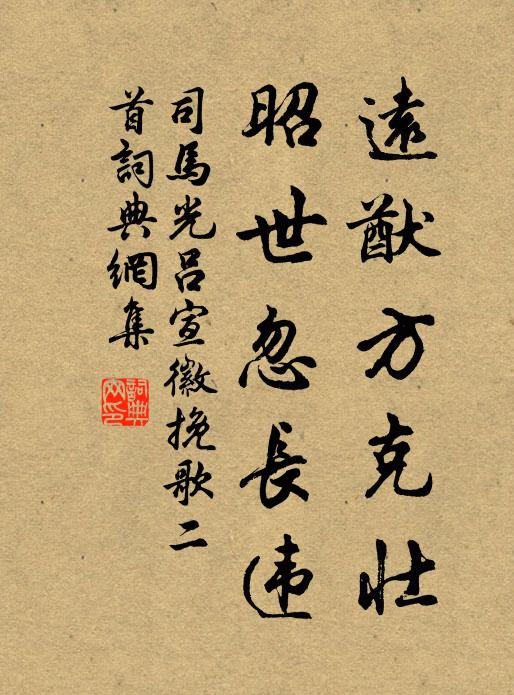 遠猷方克壯
昭世忽長违
司馬光吕宣徽挽歌二
首詞典網集